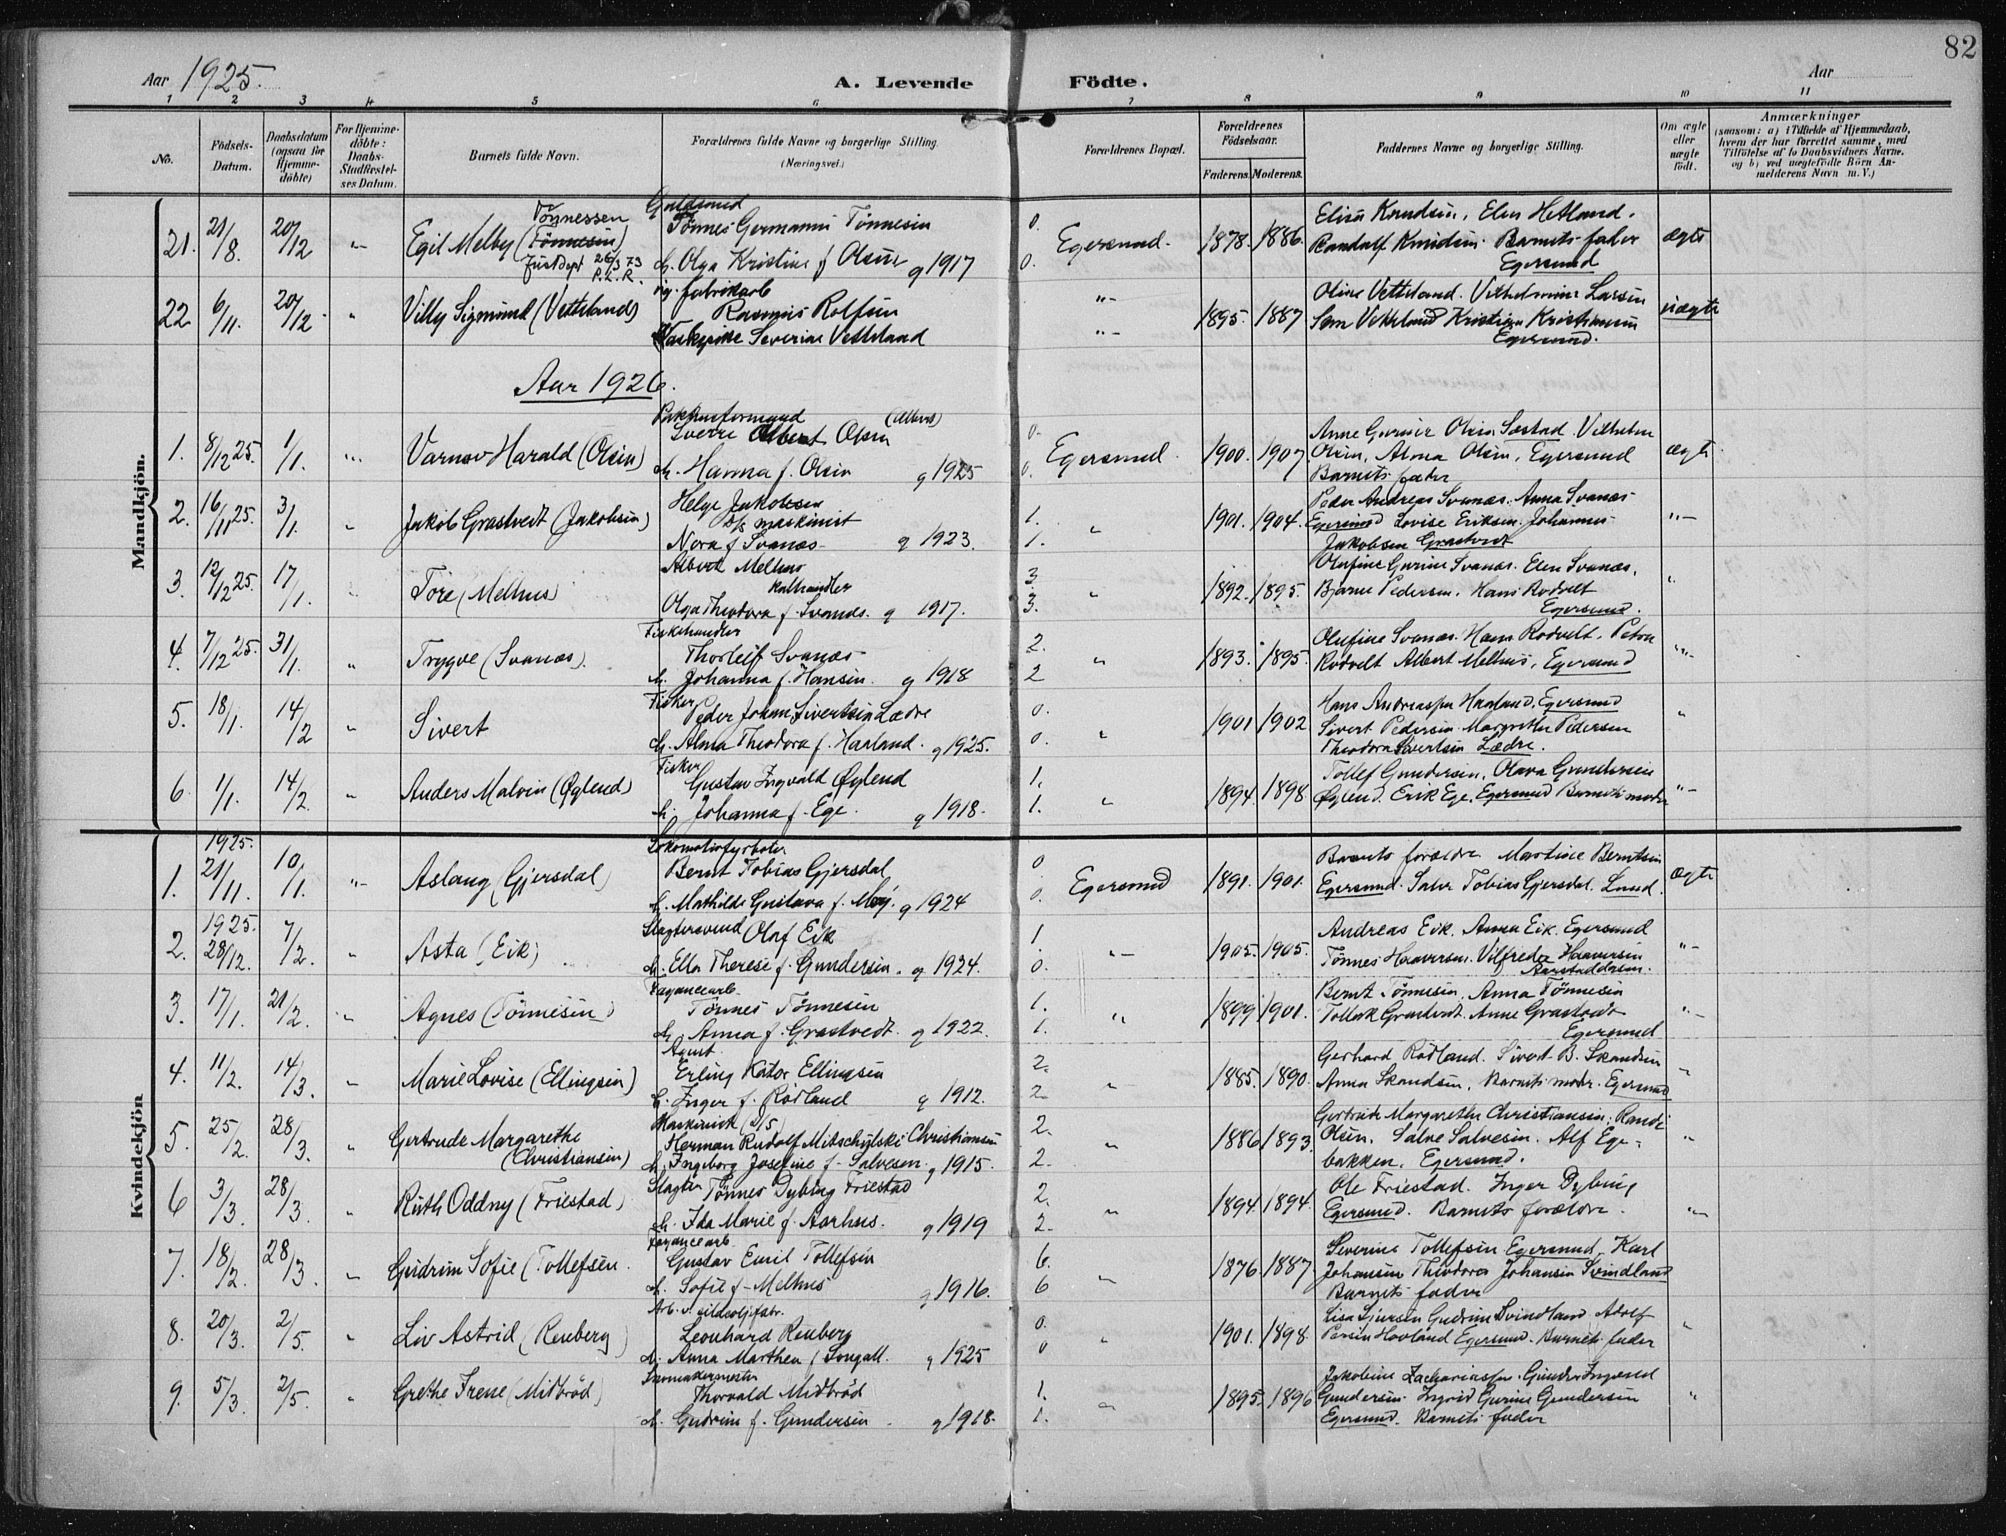 82
Aar 1925.
A. Levende Födte.
Aar
1 2 3 4 5 6 7 8 9 10 11
No.
Födsels-Datum.
Daabsdatum (ogsaa for Hjemme-döbte)
For Hjemme-döbte: Daabs-Stadfæstel-ses Datum.
Barnets fulde Navn.
Forældrenes fulde Navne og borgerlige Stilling. (Næringsvei.)
Forældrenes Bopæl.
Forældrenes Födselsaar.
Faderens. Moderens.
Faddernes Navne og borgerlige Stilling.
Om ægte eller uægte födt.
Anmærkninger
(saasom: a) i Tilfælde af Hjemmedaab, hvem der har forrettet samme, med Tilföielse af to Daabsvidners Navne. og b) ved uægtefödte Börn An-melderens Navn m. V.)
Mandkjön.
21. 21/8. 20/12 Egil Melby (Tönnesen) Tönnessen
Justdept 26/3 73 P.L.R.
Guldsmed
Tönnes Germann Tönnesen
h. Olga Kristine f. Olsen g 1917
0. 0. Egersund. 1878. 1886.
Elise Knudsen, Elen Hetland.
Randolf Knudsen. Barnets fader
Egersund
ægte
22 6/11. 20/12. Villy Sigmund (Vetteland)
ug. fabrikarb
Rasmus Rolfsen
Severine Vetteland
1895. 1887
Oline Vetteland. Vilhelmine Larsen
Sem Vetteland Kristian Kristiansen
Egersund.
uægte
Aar 1926.
1. 8/12 25. 1/1. Varnov Harald (Olsen)
Pakhusformand (Albert)
Sverre Albert Olsen
h. Hanna f. Olsen g 1925
0. 0. Egersund. 1900. 1907
Anne Gurine Olsen Sæstad Vilhelm
Olsen, Alma Olsen, Egersund
Barnets fader
ægte
2. 16/11 25. 3/1. Jakob Grastvedt (Jakobsen)
Helge Jakobsen
D/s maskinist
Nora f. Svanæs. g 1923.
1. 1. 1901. 1904.
Peder Andreas Svanæs. Anna Svanæs
Egersund Lovise Eriksen. Johannes
Jakobsen Grastvedt
3. 12/12 25. 17/1. Tore (Melhus)
Albert Melhus
Kulhandler
Olga Theodora f. Svanæs. g 1917.
3. 3. 1892. 1895.
Olufine Gurine Svanæs. Elen Svanæs.
Bjarne Pedersen. Hans Rodvelt
Egersund.
4. 7/12 25. 31/1. Trygve (Svanæs).
Fiskehandler
Thorleif Svanæs
h. Johanna f. Hansen. g 1918
2. 2 1893. 1895.
Olufine Svanæs. Hans Rodvelt. Petra
Rodvelt Albert Melhus, Egersund
5. 18/1. 14/2 Sivert
Fisker
Peder Johan Sivertsen Lædre
h. Alma Theodora f. Harland. g 1925.
0. 0. 1901 1902
Hans Andreassen Haaland, Egersund
Sivert Pedersen. Margrethe Pedersen
Theodora Sivertsen Lædre.
6. 1/1. 14/2. Anders Malvin (Øglend)
Fisker
Gustav Ingvald Øglend
h. Johanna f. Ege. g 1918.
1. 1. 1894 1898
Tollef Gundersen, Olava Gundersen
Øglend. Erik Ege, Egersund Barnets moder
Kvindekjön
1. 1925. 21/11. 10/1. Aslaug (Gjersdal)
Lokomotivfyrböter
Bernt Tobias Gjersdal
h. Mathilde Gustava f. Moy. g 1924
0 0. Egersund 1891. 1901.
Barnets forældre Martine Berntsen
Egersund. Salve Tobias Gjersdal. Lund.
ægte
2. 1925. 28/12. 7/2. Asta (Eik)
Slagtersvend Olaf Eik
h. Ella Therese f. Gundersen. g 1924.
1. 0. 1905. 1905.
Andreas Eik. Anna Eik. Egersund
Tönnes Haaversen. Vilfreder Haaversen
3. 17/1. 21/2. Agnes (Tönnesen)
Fayancearb.
Tönnes Tönnesen
h. Anna f. Grastvedt. g 1922.
1. 1. 1899 1901.
Bernt Tönnesen. Anna Tönnesen
Tollak Grastvedt. Anne Grastvedt
Egersund
4. 11/2. 14/3. Marie Lovise (Ellingsen)
Agent
Erling Kator Ellingsen
h. Inger f. Rödland g 1912.
2. 2. 1885. 1890.
Gerhard Rödland. Sivert B. Skandsen
Anna Skandsen. Barnets moder. Egersund
5. 25/2. 28/3. Gertrude Margarethe (Christiansen)
Maskinist (D/S)
Herman Rudolf Mitschylski Christiansen
h. Ingeborg Josefine f. Salvesen. g 1915.
2. 2. 1886 1893.
Gertrude Margarethe Christiansen. Randi
Olsen. Salve Salvesen. Alf Ege-
bakken. Egersund.
6 3/3. 28/3. Ruth Oddny (Friestad)
Slagter Tönnes Dybing Friestad
h. Ida Marie f. Aarhus. g 1919
2. 2. 1894. 1894.
Ole Friestad. Inger Dybing
Egersund. Barnets forældre.
7. 18/2. 28/3. Gudrun Sofie (Tollefsen.
Fayancearb
Gustav Emil Tollefsen
h. Sofie f. Melhus g 1916.
6. 6 1876 1887
Severine Tollefsen Egersund, Karl
Johansen Theodora Johansen Svindland
Barnets fader
8. 20/3. 2/5. Liv Astrid (Renberg)
Arb. v. sildoljefabr.
Leonhard Renberg
h. Anna Marthea f. Songall. g 1925
0. 0 1901. 1898.
Lisa Sjursen Gudrun Svindland Adolf
Persen Hovland Egersund. Barnets fader
9. 5/3. 2/5. Grethe Irene (Midbröd)
Thorvald Midbröd
h. Gudrun f. Gundersen g 1918.
1. 1. 1895. 1896
Jakobine Zachariassen. Gunder Ingvald
Gundersen. Ingrid Gurine Gundersen
Egersund. Barnets fader